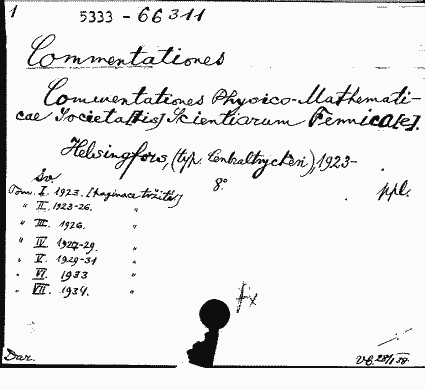 1
5333 - 66311
Commentationes
Commentationes Physico-Mathemati-
cae Societa[tis] Scientiarum Fennica[e].
Helsingfors, (typ. Centraltryckeri), 1923-
Sv. 8° ppl.
Tom. I. 1923. [paginace tržitá]
" II. 1923-26. "
" III. 1926. "
" IV. 1927-29. "
" V. 1929-31 "
" VI. 1933 "
" VII. 1934. "
Dar.
28/I 38.